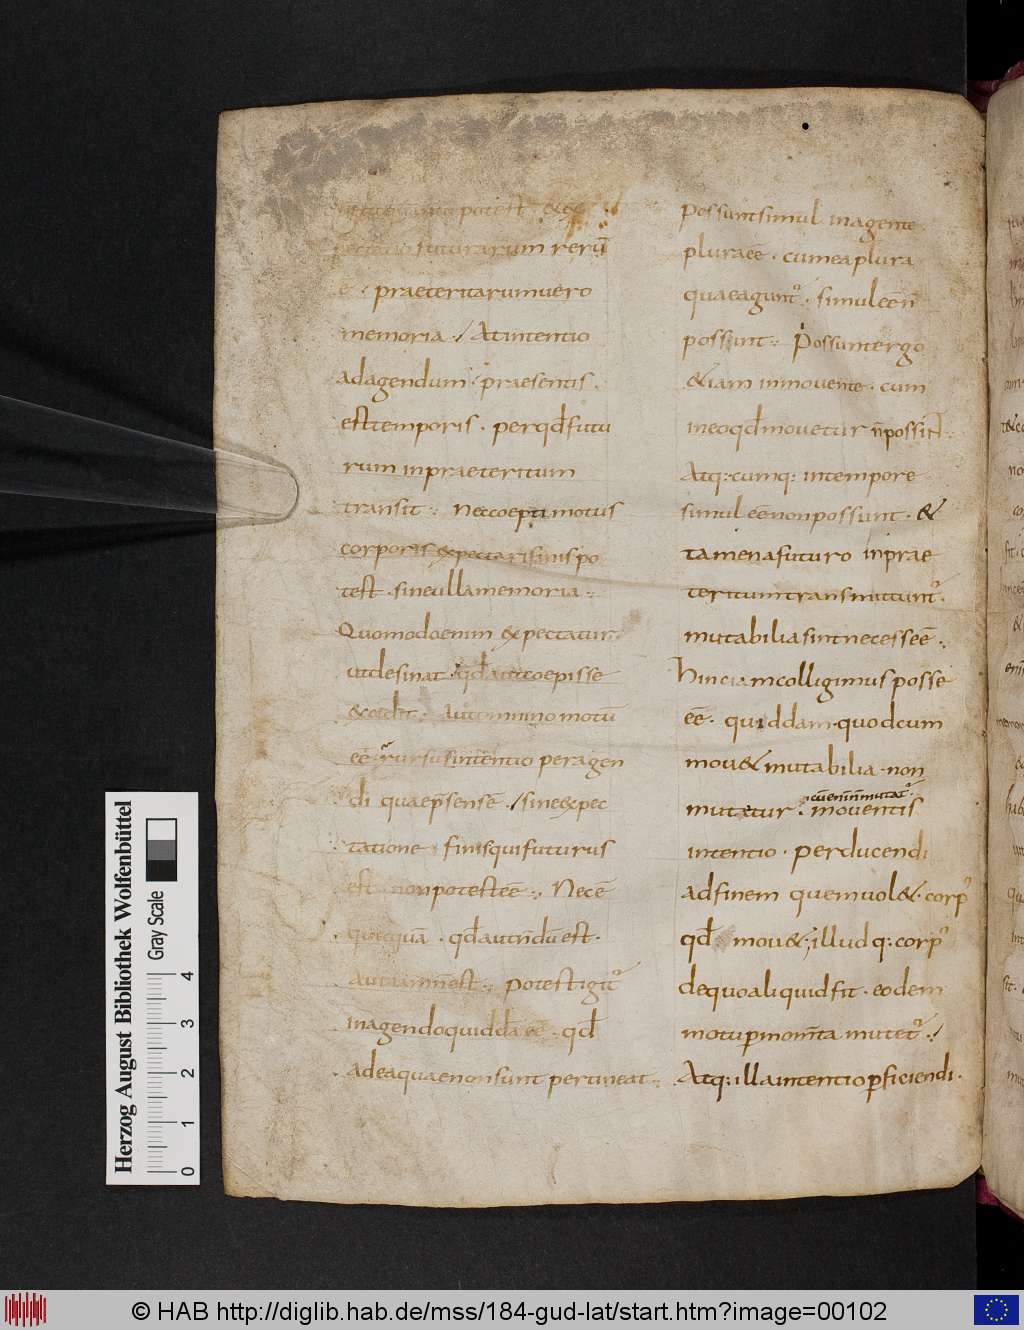 potest
futurarum rerū
ē . praeteritarum uero
memoria . At intentio
ad agendum . praesentis .
est temporis . per qđ futu
rum in praeteritum
transit . Nec coepti motus
corporis expectari finis po
test . sine ulla memoria .
Quomodo enim expectatur .
ut desinat . qđ aut coepisse
excidit . aut omnino motū
eē rursus intentio peragen
di quae p̄sens ē . sine expec
tatione finis qui futurus
est non potest eē . Nec ē
quicquā . qđ aut nondū est .
aut iam n̄ est . Potest igit᷒
in agendo quiddā eē . qđ
ad ea quae non sunt pertineat .
Possunt simul in agente
plura eē . cum ea plura
quae agunt᷒ . simul eē n̄
possunt . Possunt ergo
& iam in mouente . cum
in eo qđ mouetur n̄ possiNt .
Atq: cumq: in tempore
simul eē non possunt . &
tamen a futuro in prae
teritum transmittunt᷒ .
mutabilia sint necesse ē .
Hinc iam colligimus posse
eē . quiddam quod cum
mou& mutabilia . non
cū enim n̄ mutat᷒
mutetur . mouentis
intentio . perducendi
ad finem quem uol& . corp᷒
qđ mou& ; illudq: corp᷒
de quo aliquid fit . eodem
motu p momn̄ta mutet᷒ .
Atq: illa intentio pficiendi .
Herzog August Bibliothek Wolfenbüttel
Gray Scale
0 1 2 3 4
© HAB http://diglib.hab.de/mss/184-gud-lat/start.htm?image=00102